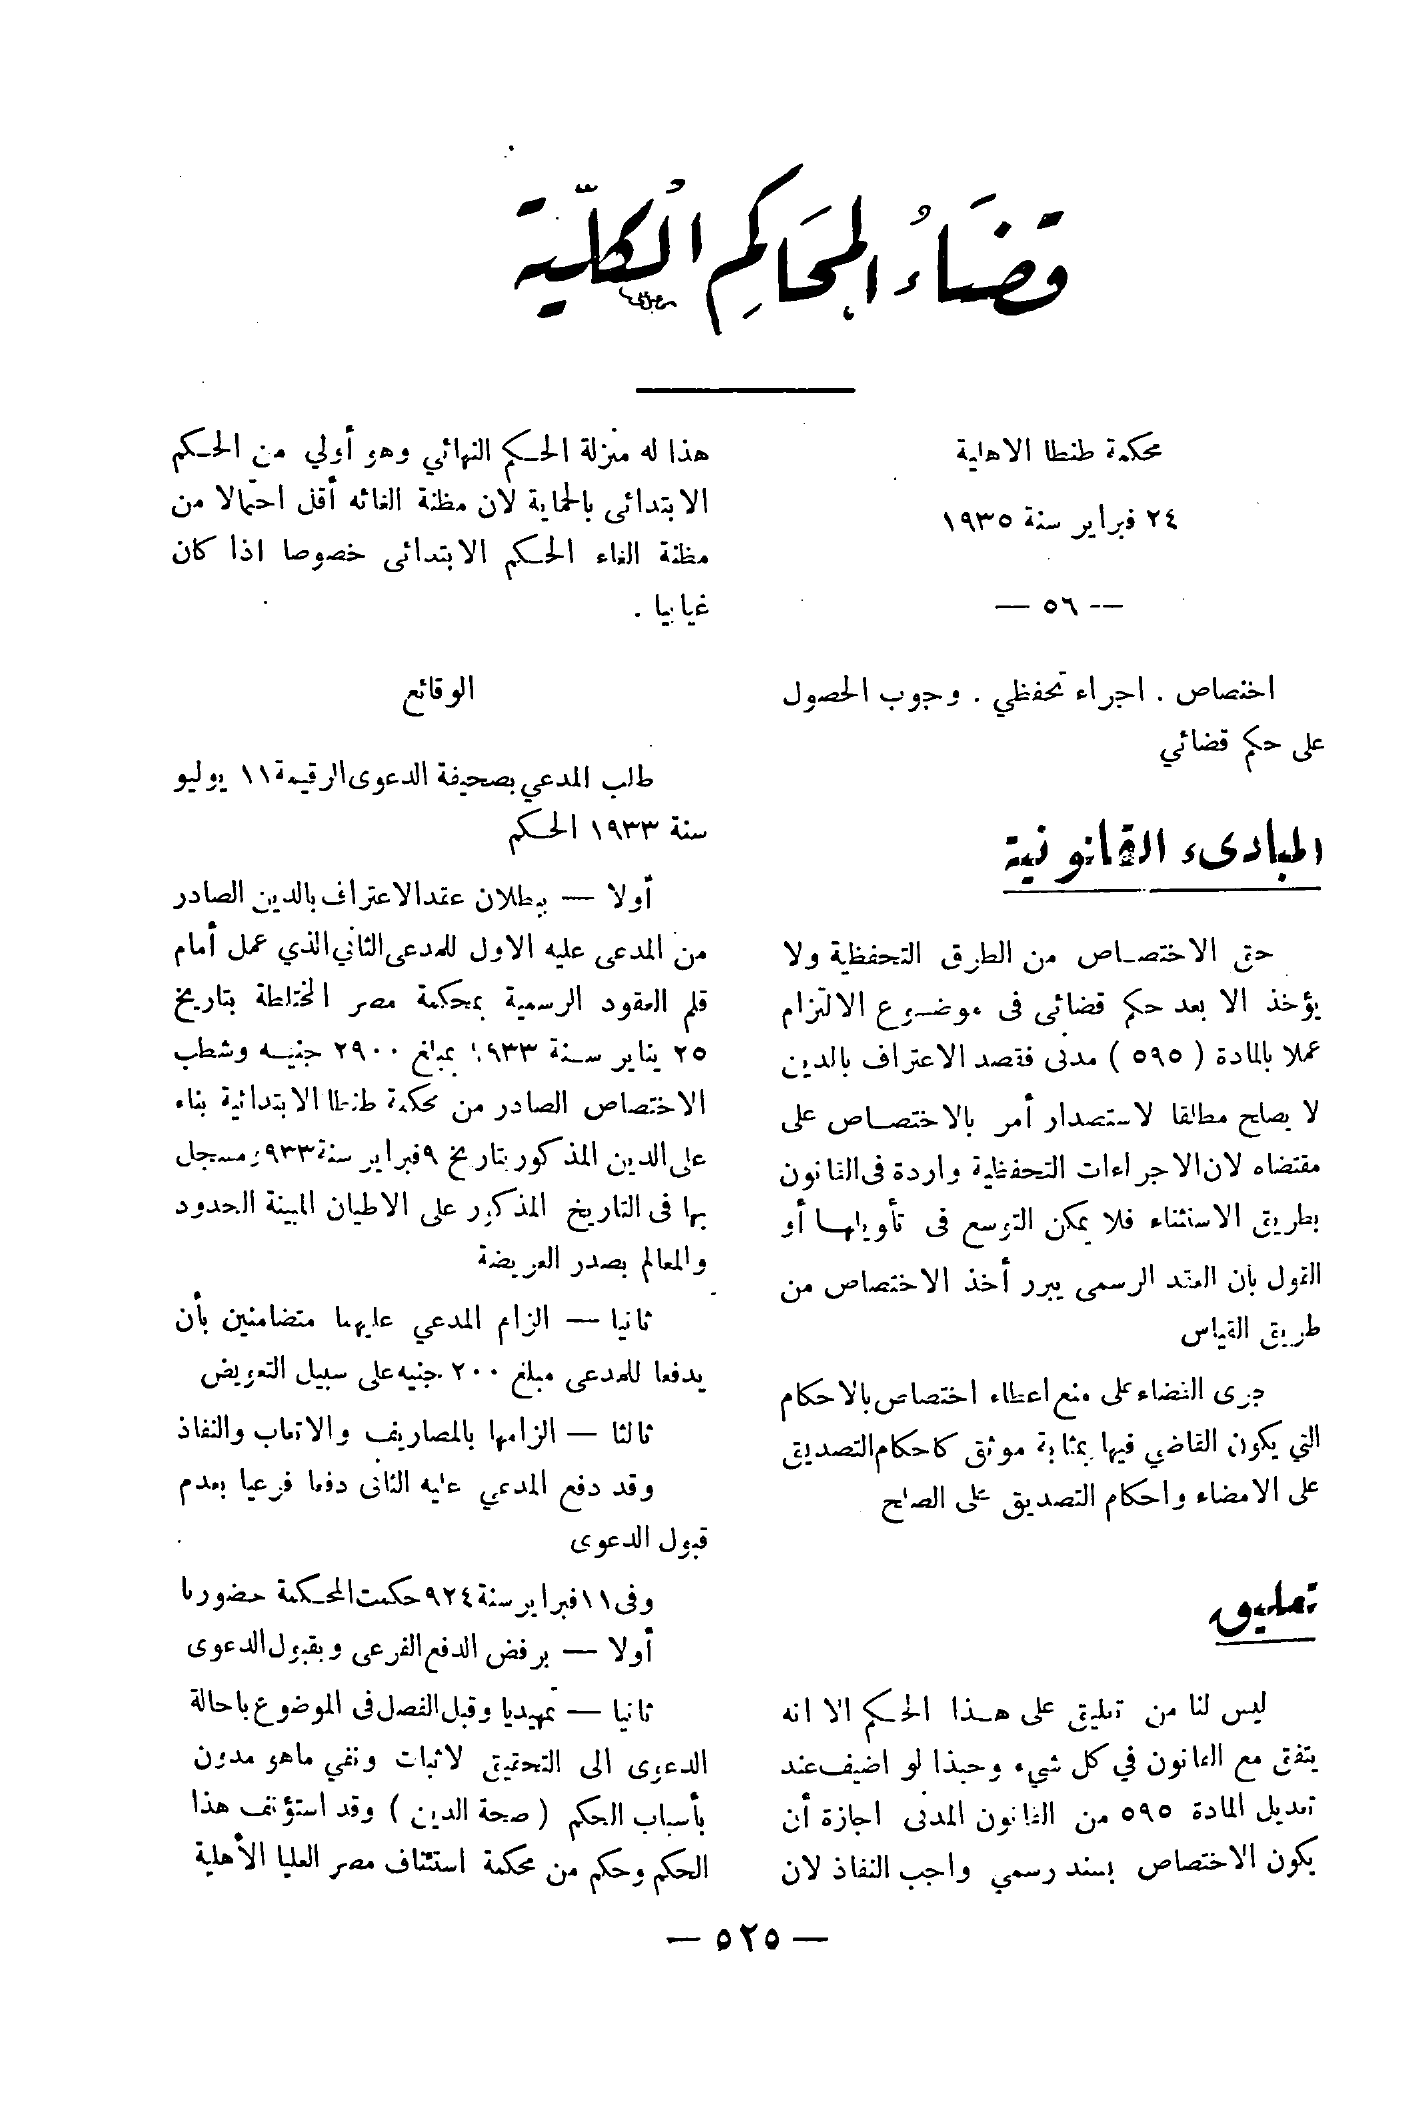 قضاء المحاكم الكلية
محكمة طنطا الاهلية
٢٤ فبراير سنة ١٩٣٥
— ٥٦ —
اختصاص . اجراء تحفظي . وجوب الحصول
على حكم قضائي
المبادىء القانونية
حق الاختصاص من الطرق التحفظية ولا
يؤخذ الا بعد حكم قضائى فى موضوع الالتزام
عملا بالمادة ( ٥٩٥ ) مدنى فقصد الاعتراف بالدين
لا يصلح مطلقا لاستصدار أمر بالاختصاص على
مقتضاه لان الاجراءات التحفظية واردة فى القانون
بطريق الاستثناء فلا يمكن التوسع فى تأويلها أو
القول بأن العقد الرسمى يبرر أخذ الاختصاص من
طريق القياس
جرى القضاء على منع اعطاء اختصاص بالاحكام
التي يكون القاضي فيها بمثابة موثق كاحكام التصديق
على الامضاء واحكام التصديق على الصلح
تعليق
ليس لنا من تعليق على هذا الحكم الا انه
يتفق مع القانون في كل شيء وحبذا لو اضيف عند
تعديل المادة ٥٩٥ من القانون المدنى اجازة أن
يكون الاختصاص بسند رسمي واجب النفاذ لان
هذا له منزلة الحكم النهائي وهو أولي من الحكم
الابتدائى بالحماية لان مظنة الغائه أقل احتمالا من
مظنة الغاء الحكم الابتدائى خصوصا اذا كان
غيابيا .
الوقائع
طلب المدعي بصحيفة الدعوى الرقيمة ١١ يوليو
سنة ١٩٣٣ الحكم
أولا — ببطلان عقد الاعتراف بالدين الصادر
من المدعى عليه الاول للمدعى الثاني الذي عمل أمام
قلم العقود الرسمية بمحكمة مصر المختلطة بتاريخ
٢٥ يناير سنة ١٩٣٣ بمبلغ ٢٩٠٠ جنيه وشطب
الاختصاص الصادر من محكمة طنطا الابتدائية بناء
على الدين المذكور بتاريخ ٩ فبراير سنة ١٩٣٣ ومسجل
بها فى التاريخ المذكور على الاطيان المبينة الحدود
والمعالم بصدر العريضة
ثانيا — الزام المدعي عليهما متضامنين بأن
يدفعا للمدعى مبلغ ٢٠٠ جنيه على سبيل التعويض
ثالثا — الزامهما بالمصاريف والاتعاب والنفاذ
وقد دفع المدعي عليه الثانى دفعا فرعيا بعدم
قبول الدعوى
وفى ١١ فبراير سنة ٩٢٤ حكمت المحكمة حضوريا
أولا — برفض الدفع الفرعى وبقبول الدعوى
ثانيا — تمهيديا وقبل الفصل فى الموضوع باحالة
الدعوى الى التحقيق لاثبات ونفي ماهو مدون
بأسباب الحكم ( صحة الدين ) وقد استؤنف هذا
الحكم وحكم من محكمة استئناف مصر العليا الأهلية
— ٥٢٥ —